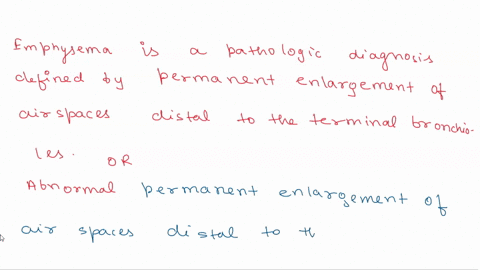 Emphysema is a pathologic diagnosis
defined by permanent enlargement of
airspaces distal to the terminal bronchio-
les. OR
Abnormal permanent enlargement of
air spaces distal to t